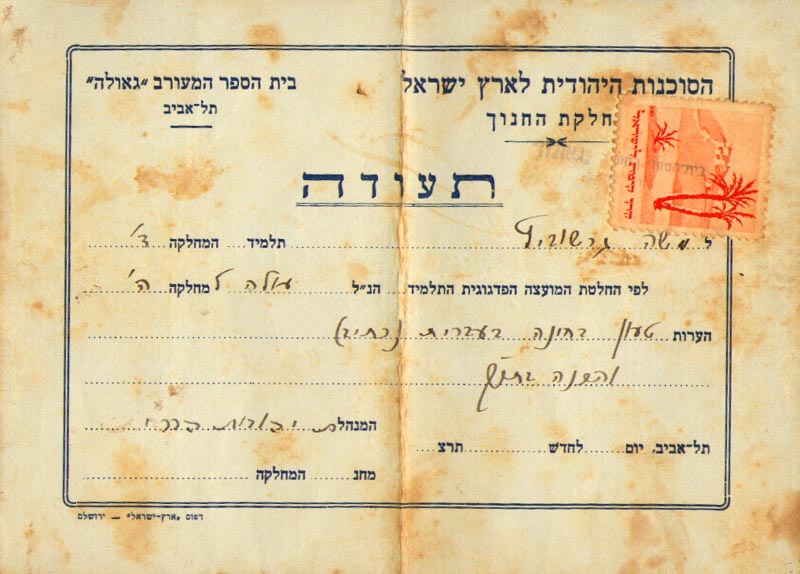 הסוכנות היהודית לארץ ישראל
חלקת החנוך
בית הספר המעורב "גאולה"
תל-אביב
תעודה
ל משה גרשוביץ תלמיד המחלקה ד'
לפי החלטת המועצה הפדגוגית התלמיד הנ"ל עולה למחלקה ה'
הערות טעון בחינה בעברית (כתיב)
המנהלת יהודית הררי
תל-אביב, יום לחדש תרצ
מחנ המחלקה
דפוס "ארץ-ישראל" — ירושלם
קרן קימת לישראל